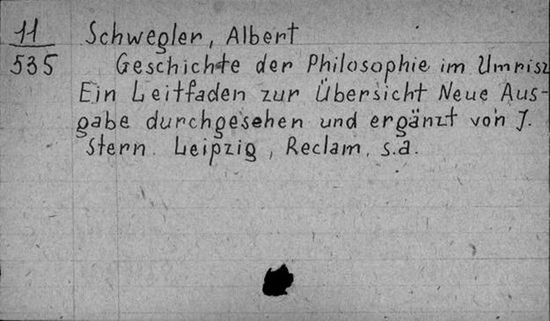 11 Schwegler, Albert
535 Geschichte der Philosophie im Umrisz
Ein Leitfaden zur Übersicht Neue Aus-
gabe durchgesehen und ergänzt von J.
Stern. Leipzig, Reclam, s.a.